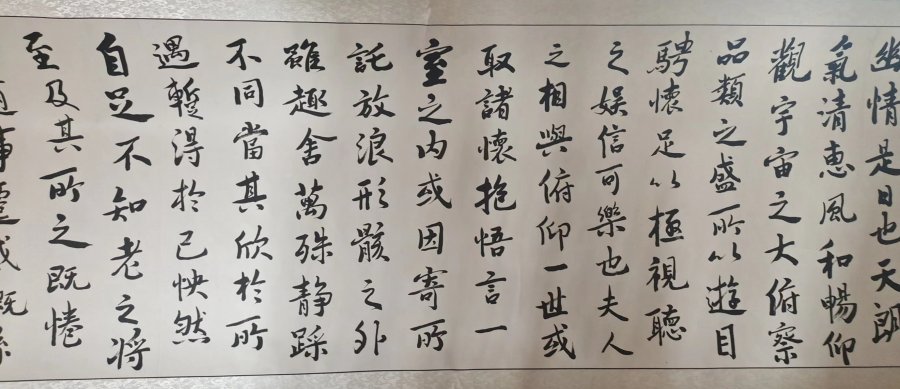 幽情是日也天朗
氣清惠風和暢仰
觀宇宙之大俯察
品類之盛所以遊目
騁懷足以極視聽
之娛信可樂也夫人
之相與俯仰一世或
取諸懷抱悟言一
室之内或因寄所
託放浪形骸之外
雖趣舍萬殊静躁
不同當其欣於所
遇蹔得於己怏然
自足不知老之將
至及其所之既惓
事遷感